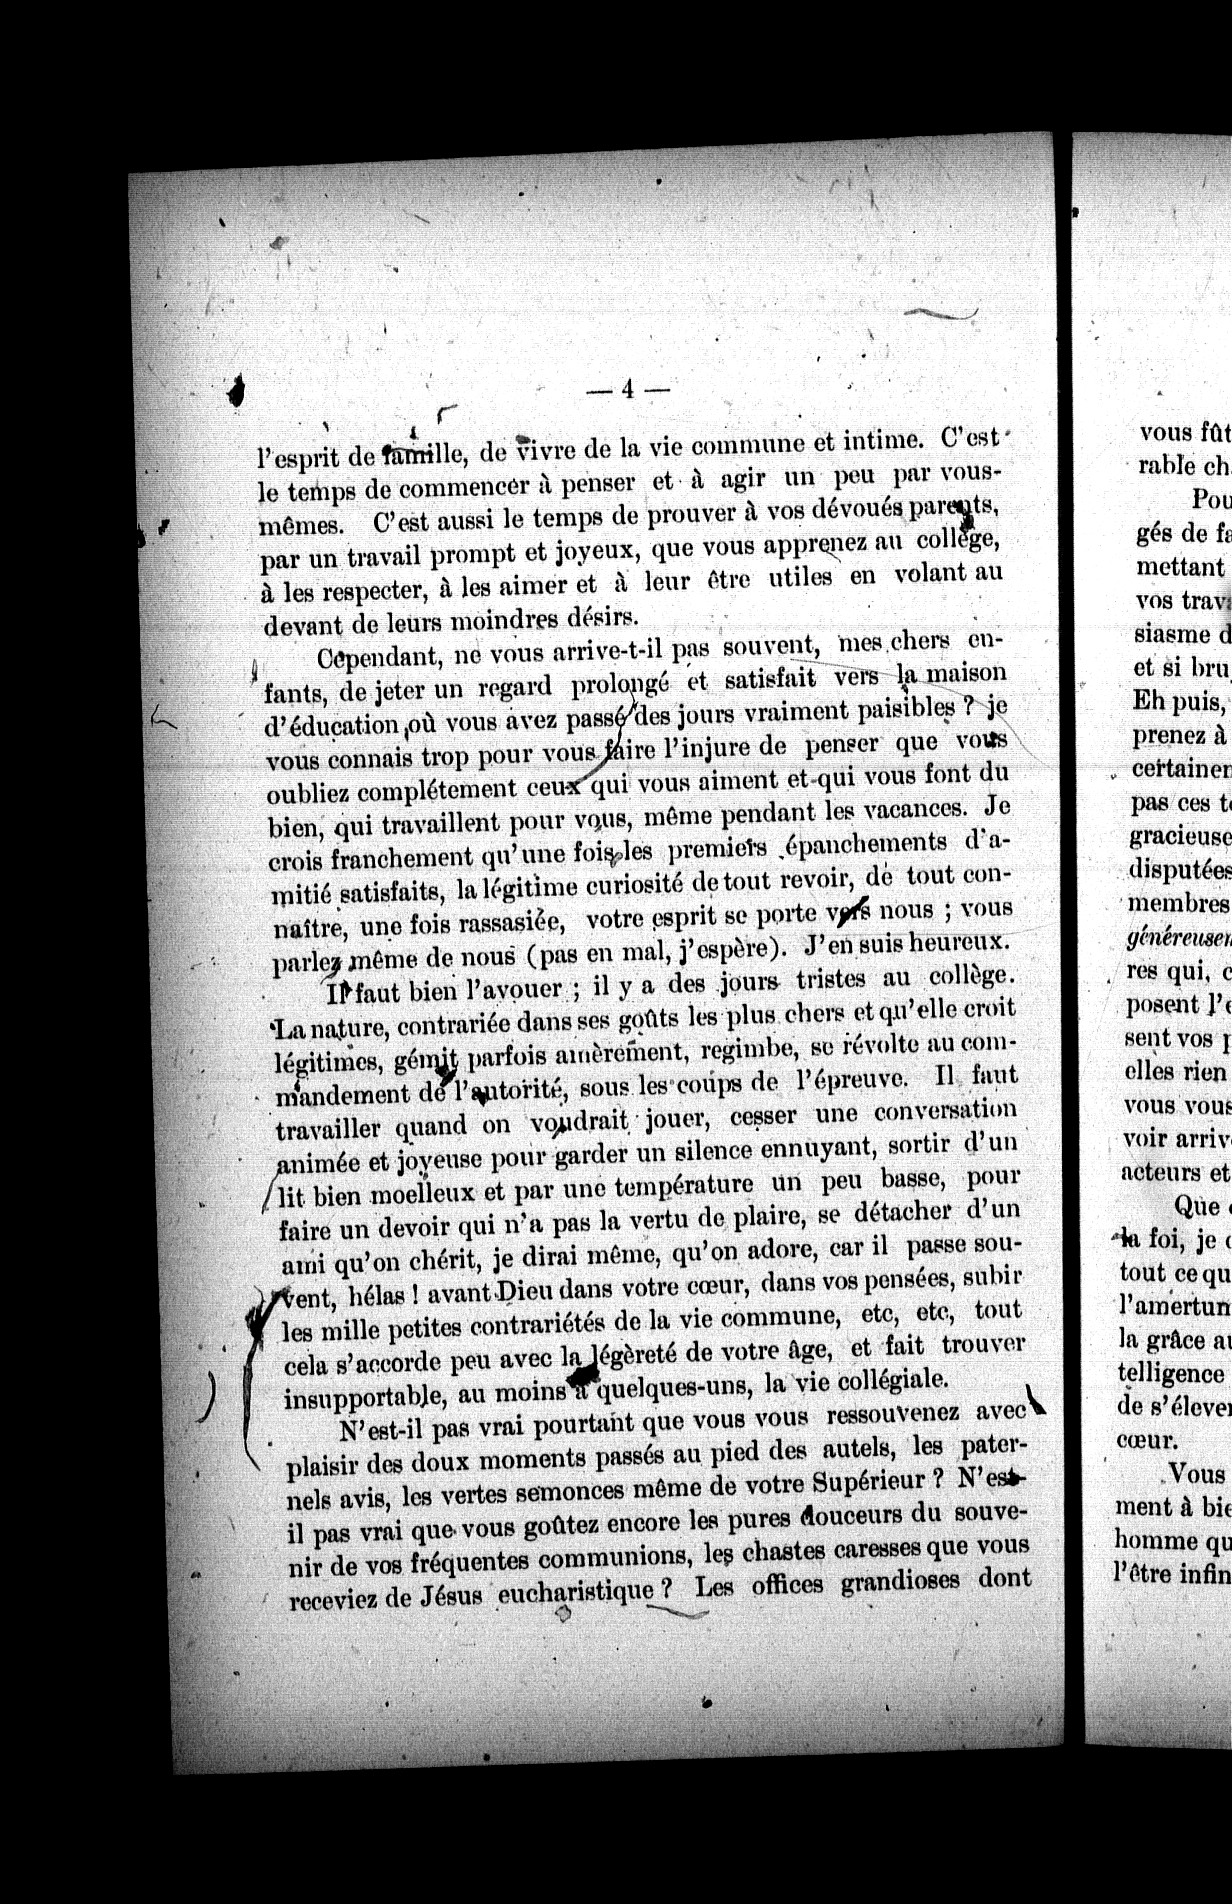 — 4 —
l'esprit de famille, de vivre de la vie commune et intime. C'est
le temps de commencer à penser et à agir un peu par vous-
mêmes. C'est aussi le temps de prouver à vos dévoués parents,
par un travail prompt et joyeux, que vous apprenez au collège,
à les respecter, à les aimer et à leur être utiles en volant au
devant de leurs moindres désirs.
Cependant, ne vous arrive-t-il pas souvent, mes chers en-
fants, de jeter un regard prolongé et satisfait vers la maison
d'éducation où vous avez passé des jours vraiment paisibles ? je
vous connais trop pour vous faire l'injure de penser que vous
oubliez complétement ceux qui vous aiment et qui vous font du
bien, qui travaillent pour vous, même pendant les vacances. Je
crois franchement qu'une fois les premiers épanchements d'a-
mitié satisfaits, la légitime curiosité de tout revoir, de tout con-
naître, une fois rassasiée, votre esprit se porte vers nous ; vous
parlez même de nous (pas en mal, j'espère). J'en suis heureux.
Il faut bien l'avouer ; il y a des jours tristes au collège.
La nature, contrariée dans ses goûts les plus chers et qu'elle croit
légitimes, gémit parfois amèrement, regimbe, se révolte au com-
mandement de l'autorité, sous les coups de l'épreuve. Il faut
travailler quand on voudrait jouer, cesser une conversation
animée et joyeuse pour garder un silence ennuyant, sortir d'un
lit bien moelleux et par une température un peu basse, pour
faire un devoir qui n'a pas la vertu de plaire, se détacher d'un
ami qu'on chérit, je dirai même, qu'on adore, car il passe sou-
vent, hélas ! avant Dieu dans votre cœur, dans vos pensées, subir
les mille petites contrariétés de la vie commune, etc, etc, tout
cela s'accorde peu avec la légèreté de votre âge, et fait trouver
insupportable, au moins à quelques-uns, la vie collégiale.
N'est-il pas vrai pourtant que vous vous ressouvenez avec
plaisir des doux moments passés au pied des autels, les pater-
nels avis, les vertes semonces même de votre Supérieur ? N'est-
il pas vrai que vous goûtez encore les pures douceurs du souve-
nir de vos fréquentes communions, les chastes caresses que vous
receviez de Jésus eucharistique ? Les offices grandioses dont
vous fût
rable ch
Pou
gés de fa
mettant
vos trav
siasme d
et si bru
Eh puis,
prenez à
certainem
pas ces t
gracieuse
disputées
membres
généreusem
res qui, c
posent l'e
sent vos p
elles rien
vous vous
voir arriv
acteurs et
Que
la foi, je
tout ce qu
l'amertun
la grâce au
telligence
de s'élever
cœur.
Vous
ment à bie
homme qu
l'être infin